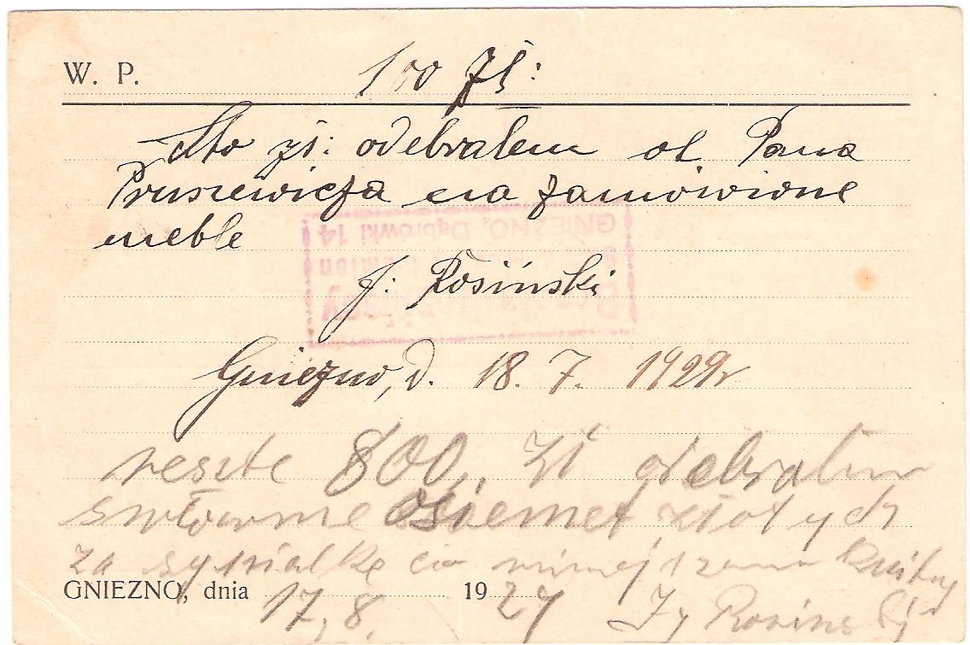 W. P. 100 Zł:
Sto zł: odebrałem od Pana
Pruszewicza na zamówione
meble
J: Rosiński
GNIEZNO, Dąbrówki 14
Gniezno, d. 18. 7. 1929r
reszte 800, Zł odebrałem
osiemet złotych
za sypialkę
GNIEZNO, dnia 17, 8. 19 29